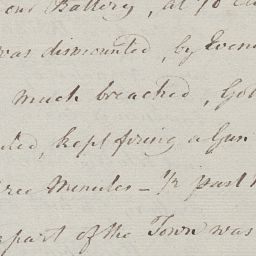 our Battery, at 10
was dismounted, by Even
much breached,
kept firing a Gun
ree Minutes - 1/2 past
part of the Town was